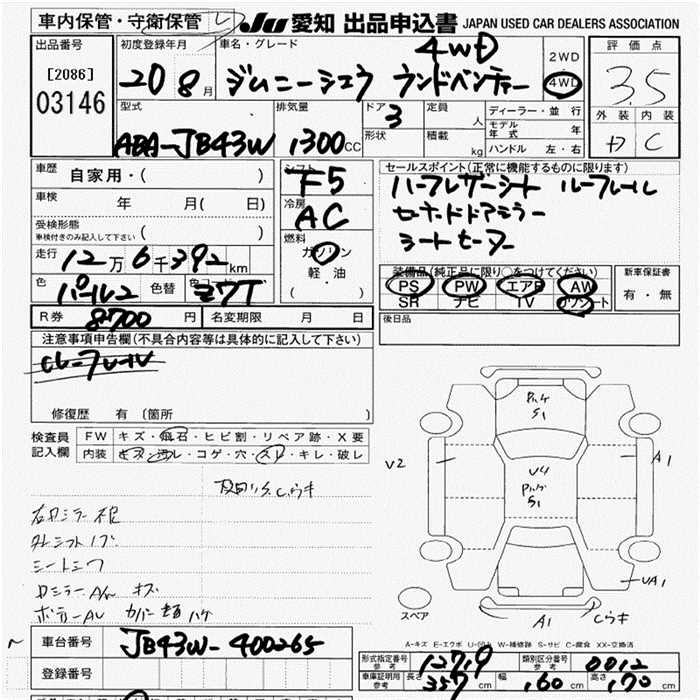 車内保管・守衛保管 JU 愛知 出品申込書 JAPAN USED CAR DEALERS ASSOCIATION
出品番号
[2086]
03146
初度登録年月
20 8月
車名・グレード
4WD
ジムニーシエラ ランドベンチャー
2WD
4WD
評価点
3.5
外装 内装
C
型式
ABA-JB43W
排気量
1300cc
ドア
3
形状
定員
人
積載
kg
ディーラー・並行
モデル年式 年
ハンドル 左・右
車歴
自家用・( )
車検
年 月( 日)
受検形態
車検付きのみ記入して下さい
( )
走行
12万6千392km
色
パール2
色替
シフト
F5
冷房
AC
燃料
ガソリン
軽・油
( )
セールスポイント(正常に機能するものに限ります)
ハーフレザーシート ルーフレール
セキュードドアミラー
シートヒーター
装備品(純正品に限り○をつけてください)
PS PW エアB AW
SR ナビ TV カワシート
新車保証書
有・無
後日品
R券
8700円
名変期限 月 日
注意事項申告欄(不具合内容等は具体的に記入して下さい)
修復歴 有(箇所 )
検査員
記入欄
FW キズ・飛石・ヒビ割・リペア跡・X要
内装 キズ・汚レ・コゲ・穴・スレ・キレ・破レ
シートシワ
V2
A1
S1
U4
S1
UA1
A1
Cラキ
スペア
A-キズ E-エクボ U-凹ム W-補修跡 S-サビ C-腐食 XX-交換済
車台番号
JB43W-400265
登録番号
形式指定番号
参考
12719
類別区分番号
参考
0012
車庫証明用
参考
長さ 357cm
幅 160cm
高さ 170cm